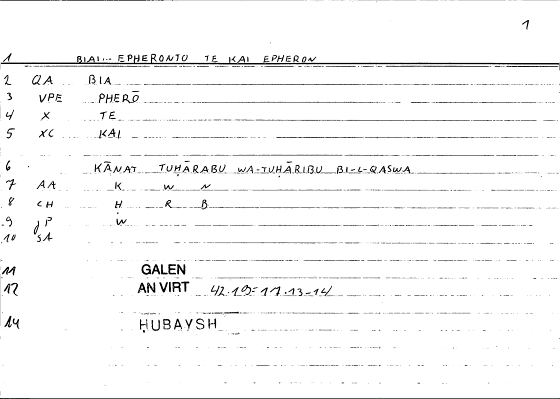 1
1 BIAI... EPHERONTO TE KAI EPHERON
2 QA BIA
3 VPE PHERŌ
4 X TE
5 XC KAI
6 KĀNAT TUḤĀRABU WA-TUḤĀRIBU BI-L-QASWA
7 AA K W N
8 CH Ḥ R B
9 JP W
10 SA
11 GALEN
12 AN VIRT 42.19=17.13-14
14 ḤUBAYSH